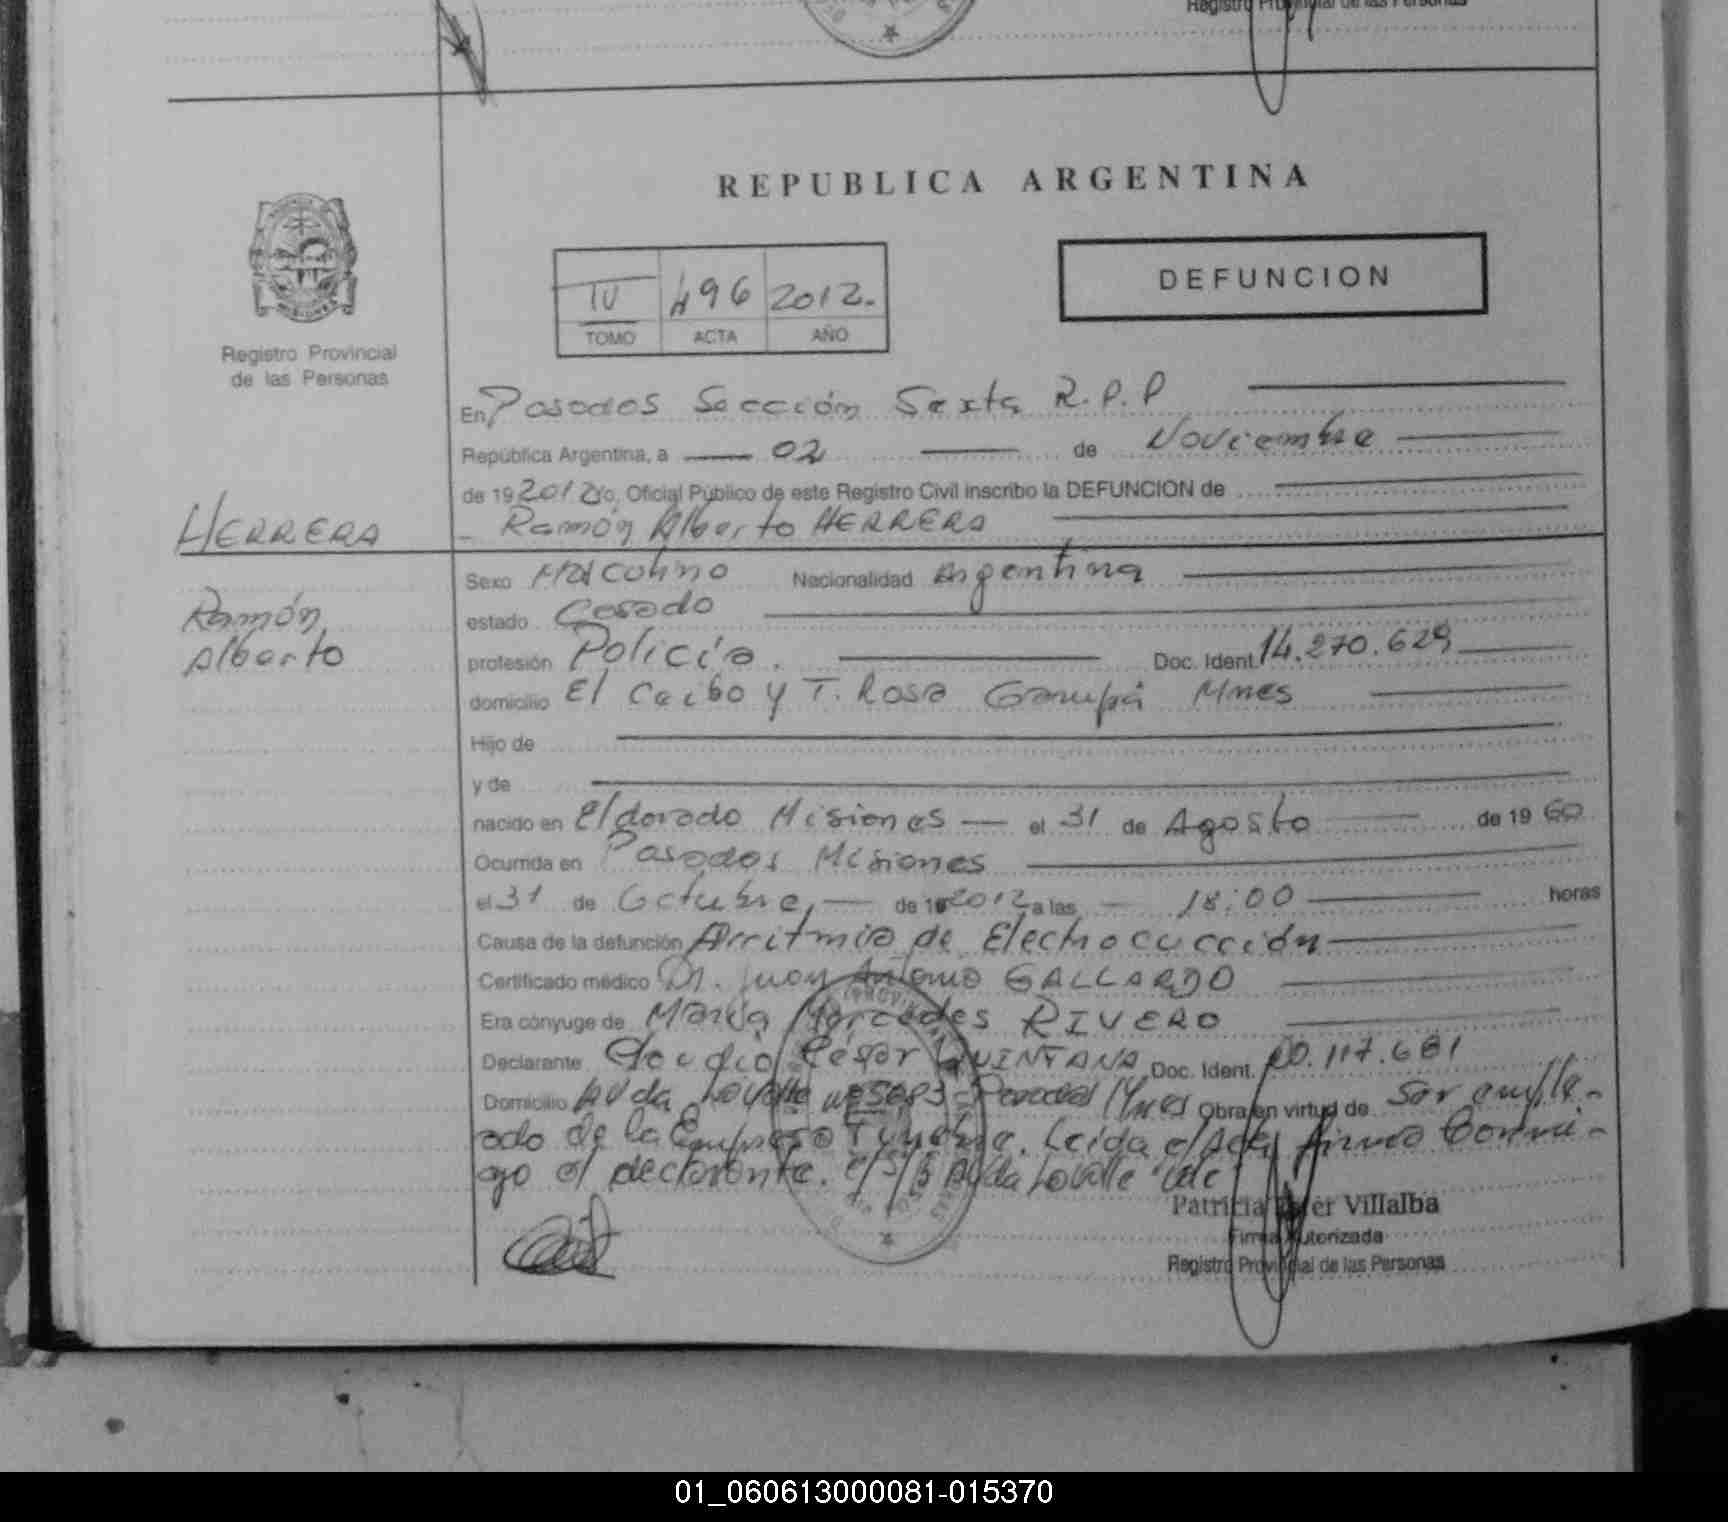 Registro Provincial de las Personas
REPUBLICA ARGENTINA
DEFUNCION
IV 496 2012.
TOMO ACTA AÑO
Registro Provincial
de las Personas
En Posadas Sección Sexta R.P.P
República Argentina, a 02 de Noviembre
de 19 2012 Yo, Oficial Público de este Registro Civil inscribo la DEFUNCION de
HERRERA
Ramón Alberto HERRERA
Sexo Masculino Nacionalidad Argentina
Ramón
Alberto
estado Casado
profesión Policía. Doc. Ident. 14.270.629
domicilio El Ceibo y T. Rosa Garupá Mnes
Hijo de
y de
nacido en Eldorado Misiones el 31 de Agosto de 19 60
Ocurrida en Posadas Misiones
el 31 de Octubre, de 19 2012 a las 18:00 horas
Causa de la defunción Arritmia de Electrocución
Certificado médico Dr. Juan Antonio GALLARDO
Era cónyuge de María Mercedes RIVERO
Declarante Claudio César QUINTANA Doc. Ident. 20.117.681
Domicilio Avda Lavalle Nº 5083 Posadas Mnes Obra en virtud de Ser emple-
ado de la Empresa Fúnebre. Leida el Acta firma Conmi-
go el declarante. Avda Lavalle Vale
Patricia Villalba
Firma Autorizada
Registro Provincial de las Personas
01_060613000081-015370